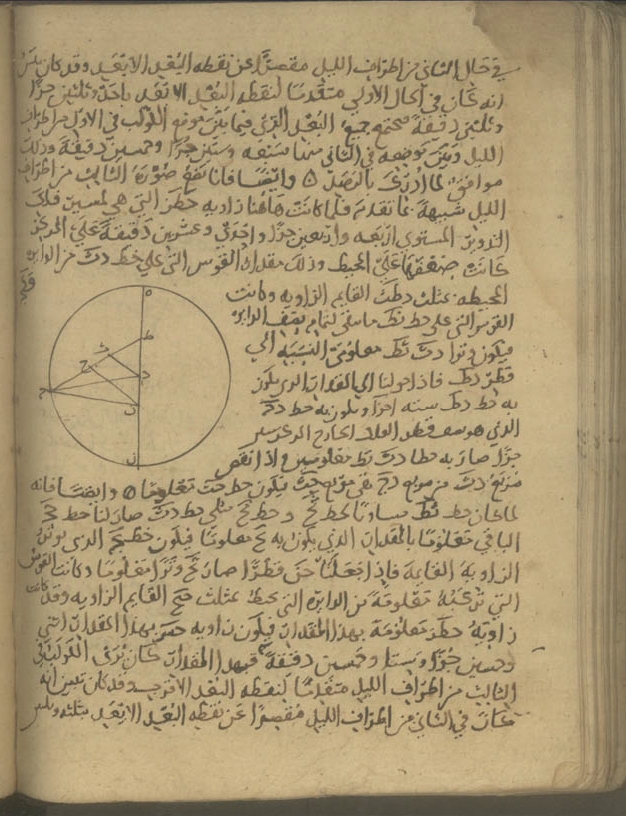 في حال الثاني من اطراف الليل مقصرًا عن نقطه البعد الابعد وقد كان
انه كان في الحال الاولى متقدمًا لنقطه البعد الابعد باحد وثلثين جزًا
وثلثين دقيقة فيجتمع جميع البعد الذي فيما بين موضع الكوكب في الاول من اطراف
الليل وبين موضعه في الثاني منها ستة وستين جزًا وخمسين دقيقة وذلك
موافق لما ادرك بالرصد ٥ وايضا فانا نضع صورة الثالث من اطراف
الليل شبيهة بما تقدم فلما كانت هاهنا زاويه حطر التي هي لمسير فلك
التدوير المستوي اربعه واربعين جزًا واحدى وعشرين دقيقة على المركز
كانت ضعفها على المحيط وذلك مقدار القوس التي على خط دث من الدايره
المحيطه بمثلث دطث القايم الزاويه وكانت
القوس التي على خط ثط ما بقي لتمام نصف الدايره
فيكون وترا دث ثط معلومي النسبه الى
قطر دط فاذا حولنا الى المقدار الذي يكون
به خط دط سته اجزا ويكون به خط دح
الذي هو نصف قطر الفلك الخارج المركز ستين
جزًا صار به خطا دث ثط معلومين واذا نقص
مربع دث من مربع دح بقي مربع حث فيكون خط حث معلومًا ٥ وايضا فانه
لما كان خط ثط مساويًا لخط ثخ وخط نخ مثلي خط دث صار لنا خط خح
الباقي معلومًا بالمقدار الذي يكون به نخ معلومًا فيكون خط نح الذي يوتر
الزاوية القايمة فاذا جعلنا حن قطرًا صار نخ وترًا معلومًا وكانت القوس
التي تركبه معلومة من الدايرة التي تحيط بمثلث نخح القايم الزاويه وقد كانت
زاوية حطر معلومة بهذا المقدار فيكون زاويه حنر بهذا المقدار اثني
وخمسين جزًا وستا وخمسين دقيقة فبهذا المقدار كان يرى الكوكب في
الثالث من اطراف الليل متقدمًا لنقطه البعد الاقرب وقد كان تبين انه
كان في الثاني من اطراف الليل مقصرًا عن نقطه البعد الابعد بثلثه وثلثين